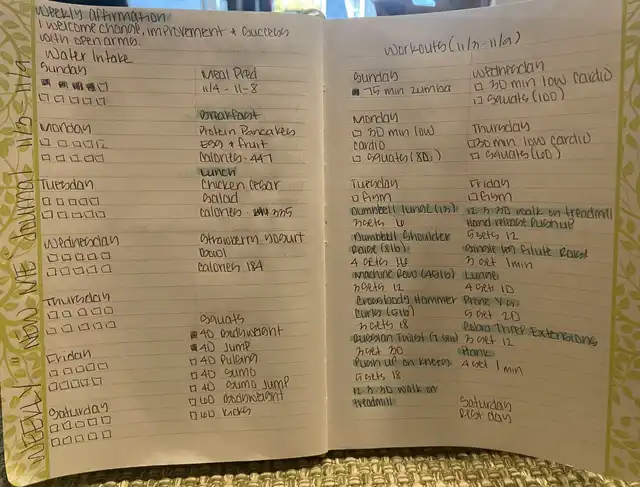 WEEKLY "NEW ME" JOURNAL 11/3 - 11/9
Weekly affirmation
I welcome change, improvement & success
with open arms.
Water Intake
Sunday
Monday
Tuesday
Wednesday
Thursday
Friday
Saturday
Meal Pred
11/4 - 11-8
Breakfast
Protein Pancakes
Egg & Fruit
Calories - 447
Lunch
Chicken Cesar
Salad
Calories - 335
Strawberry Yogurt
Bowl
Calories 184
Squats
40 Bodyweight
40 Jump
40 Pulsing
40 Sumo
40 Sumo Jump
60 Bodyweight
60 Kicks
Workouts (11/3 - 11/9)
Sunday
75 min Zumba
Monday
30 min low
cardio
Squats (80)
Tuesday
Gym
Dumbbell lunge (15)
3 sets 16
Dumbbell Shoulder
Raise (8lb)
4 sets 16
Machine Row (45lb)
3 sets 12
Crossbody Hammer
Curls (5lb)
3 sets 18
Russian Twist
3 set 30
Push up on knees
5 sets 18
12 3 30 walk on
treadmill
Wednesday
30 min low cardio
Squats (100)
Thursday
30 min low cardio
Squats (60)
Friday
Gym
12 3 30 walk on treadmill
Hand release Pushup
5 sets 12
Single leg Glute Raise
3 set 1 min
Lunge
4 set 10
Prone Y
5 set 20
Extensions
3 set 12
Plank
4 set 1 min
Saturday
Rest day